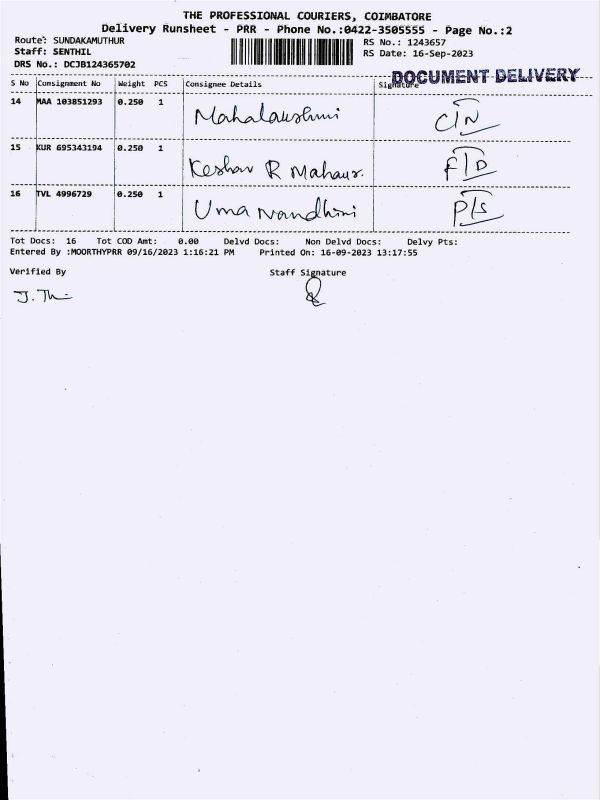 THE PROFESSIONAL COURIERS, COIMBATORE
Delivery Runsheet - PRR - Phone No.:0422-3505555 - Page No.:2
Route: SUNDAKAMUTHUR
RS No.: 1243657
Staff: SENTHIL
RS Date: 16-Sep-2023
DRS No.: DCJB124365702
DOCUMENT DELIVERY
S No Consignment No Weight PCS Consignee Details Signature
14 MAA 103851293 0.250 1 Mahalakshmi C/N
15 KUR 695343194 0.250 1 Keshav R Mahaur. F/D
16 TVL 4996729 0.250 1 Uma Nandhini P/S
Tot Docs: 16 Tot COD Amt: 0.00 Delvd Docs: Non Delvd Docs: Delvy Pts:
Entered By :MOORTHYPRR 09/16/2023 1:16:21 PM Printed On: 16-09-2023 13:17:55
Verified By Staff Signature